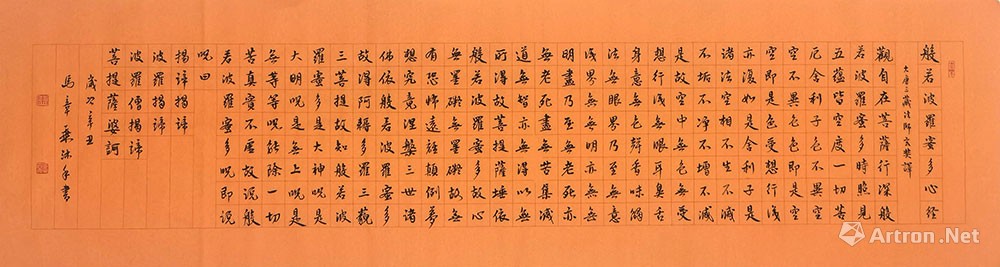 般若波羅蜜多心經
大唐三藏法師玄奘譯
觀自在菩薩行深般
若波羅蜜多時照見
五蘊皆空度一切苦
厄舍利子色不異空
空不異色色即是空
空即是色受想行識
亦復如是舍利子是
諸法空相不生不滅
不垢不淨不增不減
是故空中無色無受
想行識無眼耳鼻舌
身意無色聲香味觸
法無眼界乃至無意
識界無無明亦無無
明盡乃至無老死亦
無老死盡無苦集滅
道無智亦無得以無
所得故菩提薩埵依
般若波羅蜜多故心
無罣礙無罣礙故無
有恐怖遠離顛倒夢
想究竟涅槃三世諸
佛依般若波羅蜜多
故得阿耨多羅三藐
三菩提故知般若波
羅蜜多是大神呪是
大明呪是無上呪是
無等等呪能除一切
苦真實不虛故說般
若波羅蜜多呪即說
呪曰
揭諦揭諦
波羅揭諦
波羅僧揭諦
菩提薩婆訶
歲次辛丑
馬章乘沐手書
Artron.Net